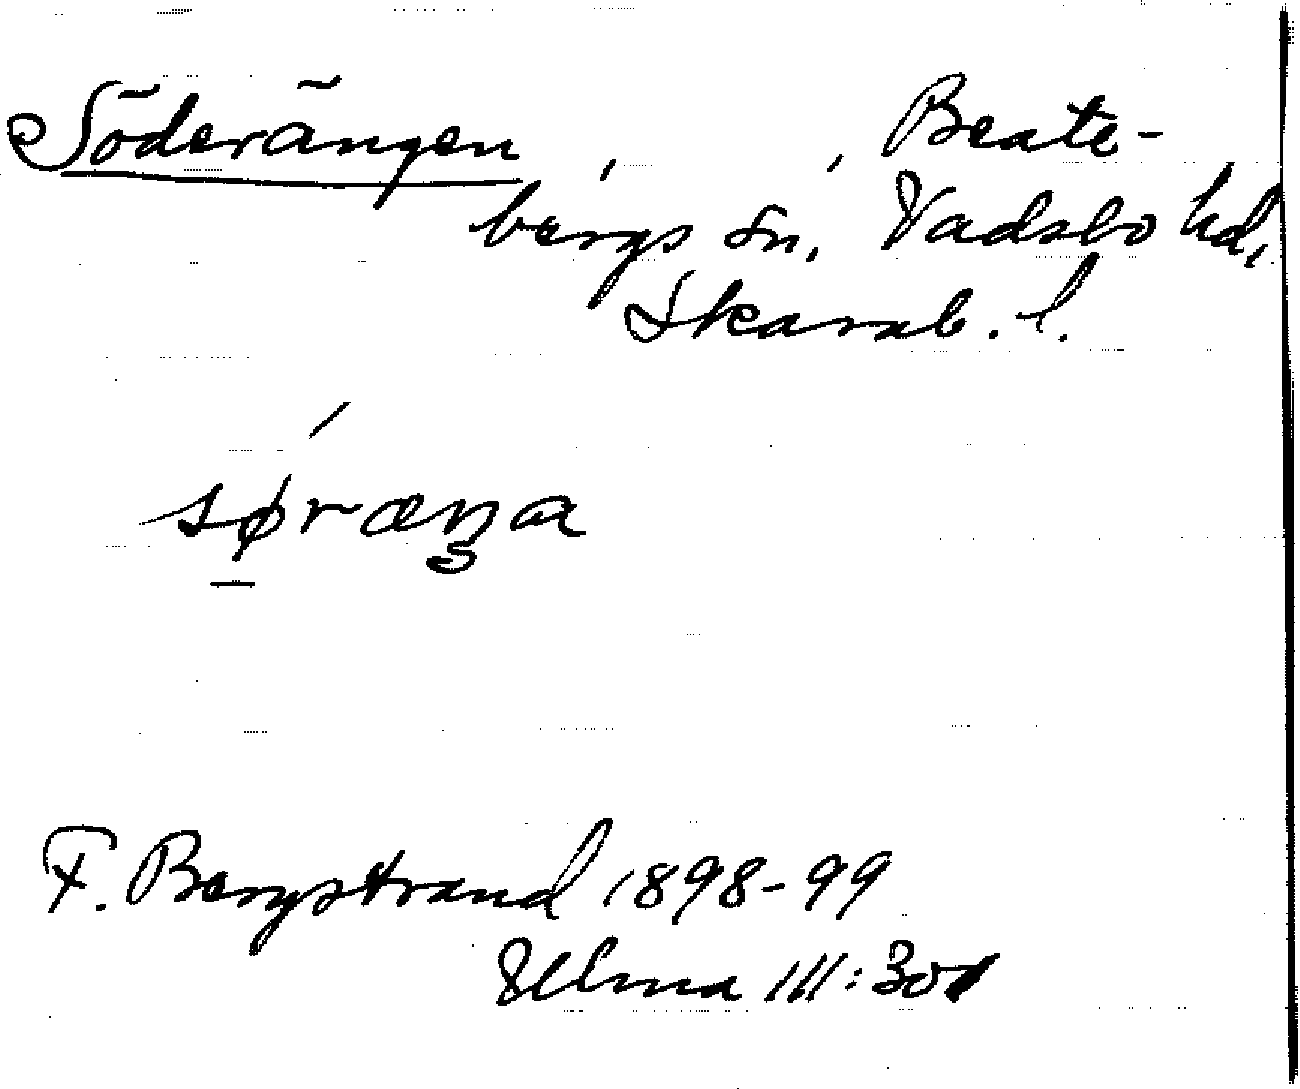 Söderängen, , Beate-
bergs sn, Vadsbo hd,
Skarab. l.
søræŋa
F. Bergstrand 1898-99
Ulma 111:301